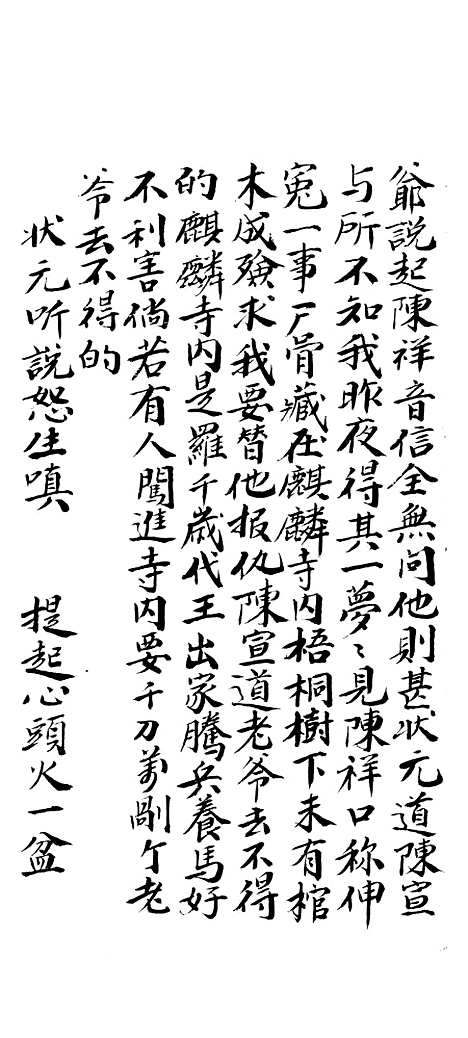 爺説起陳祥音信全無问他則甚状元道陳宣
与所不知我昨夜得其一夢〻見陳祥口称伸
寃一事尸骨藏在麒麟寺内梧桐樹下未有棺
木成殮求我要替他报仇陳宣道老爷去不得
的麒麟寺内是羅千歲代王出家騰兵養馬好
不利害倘若有人闖進寺内要千刀萬剮个老
爷去不得的
状元听説怒生嗔　提起心頭火一盆